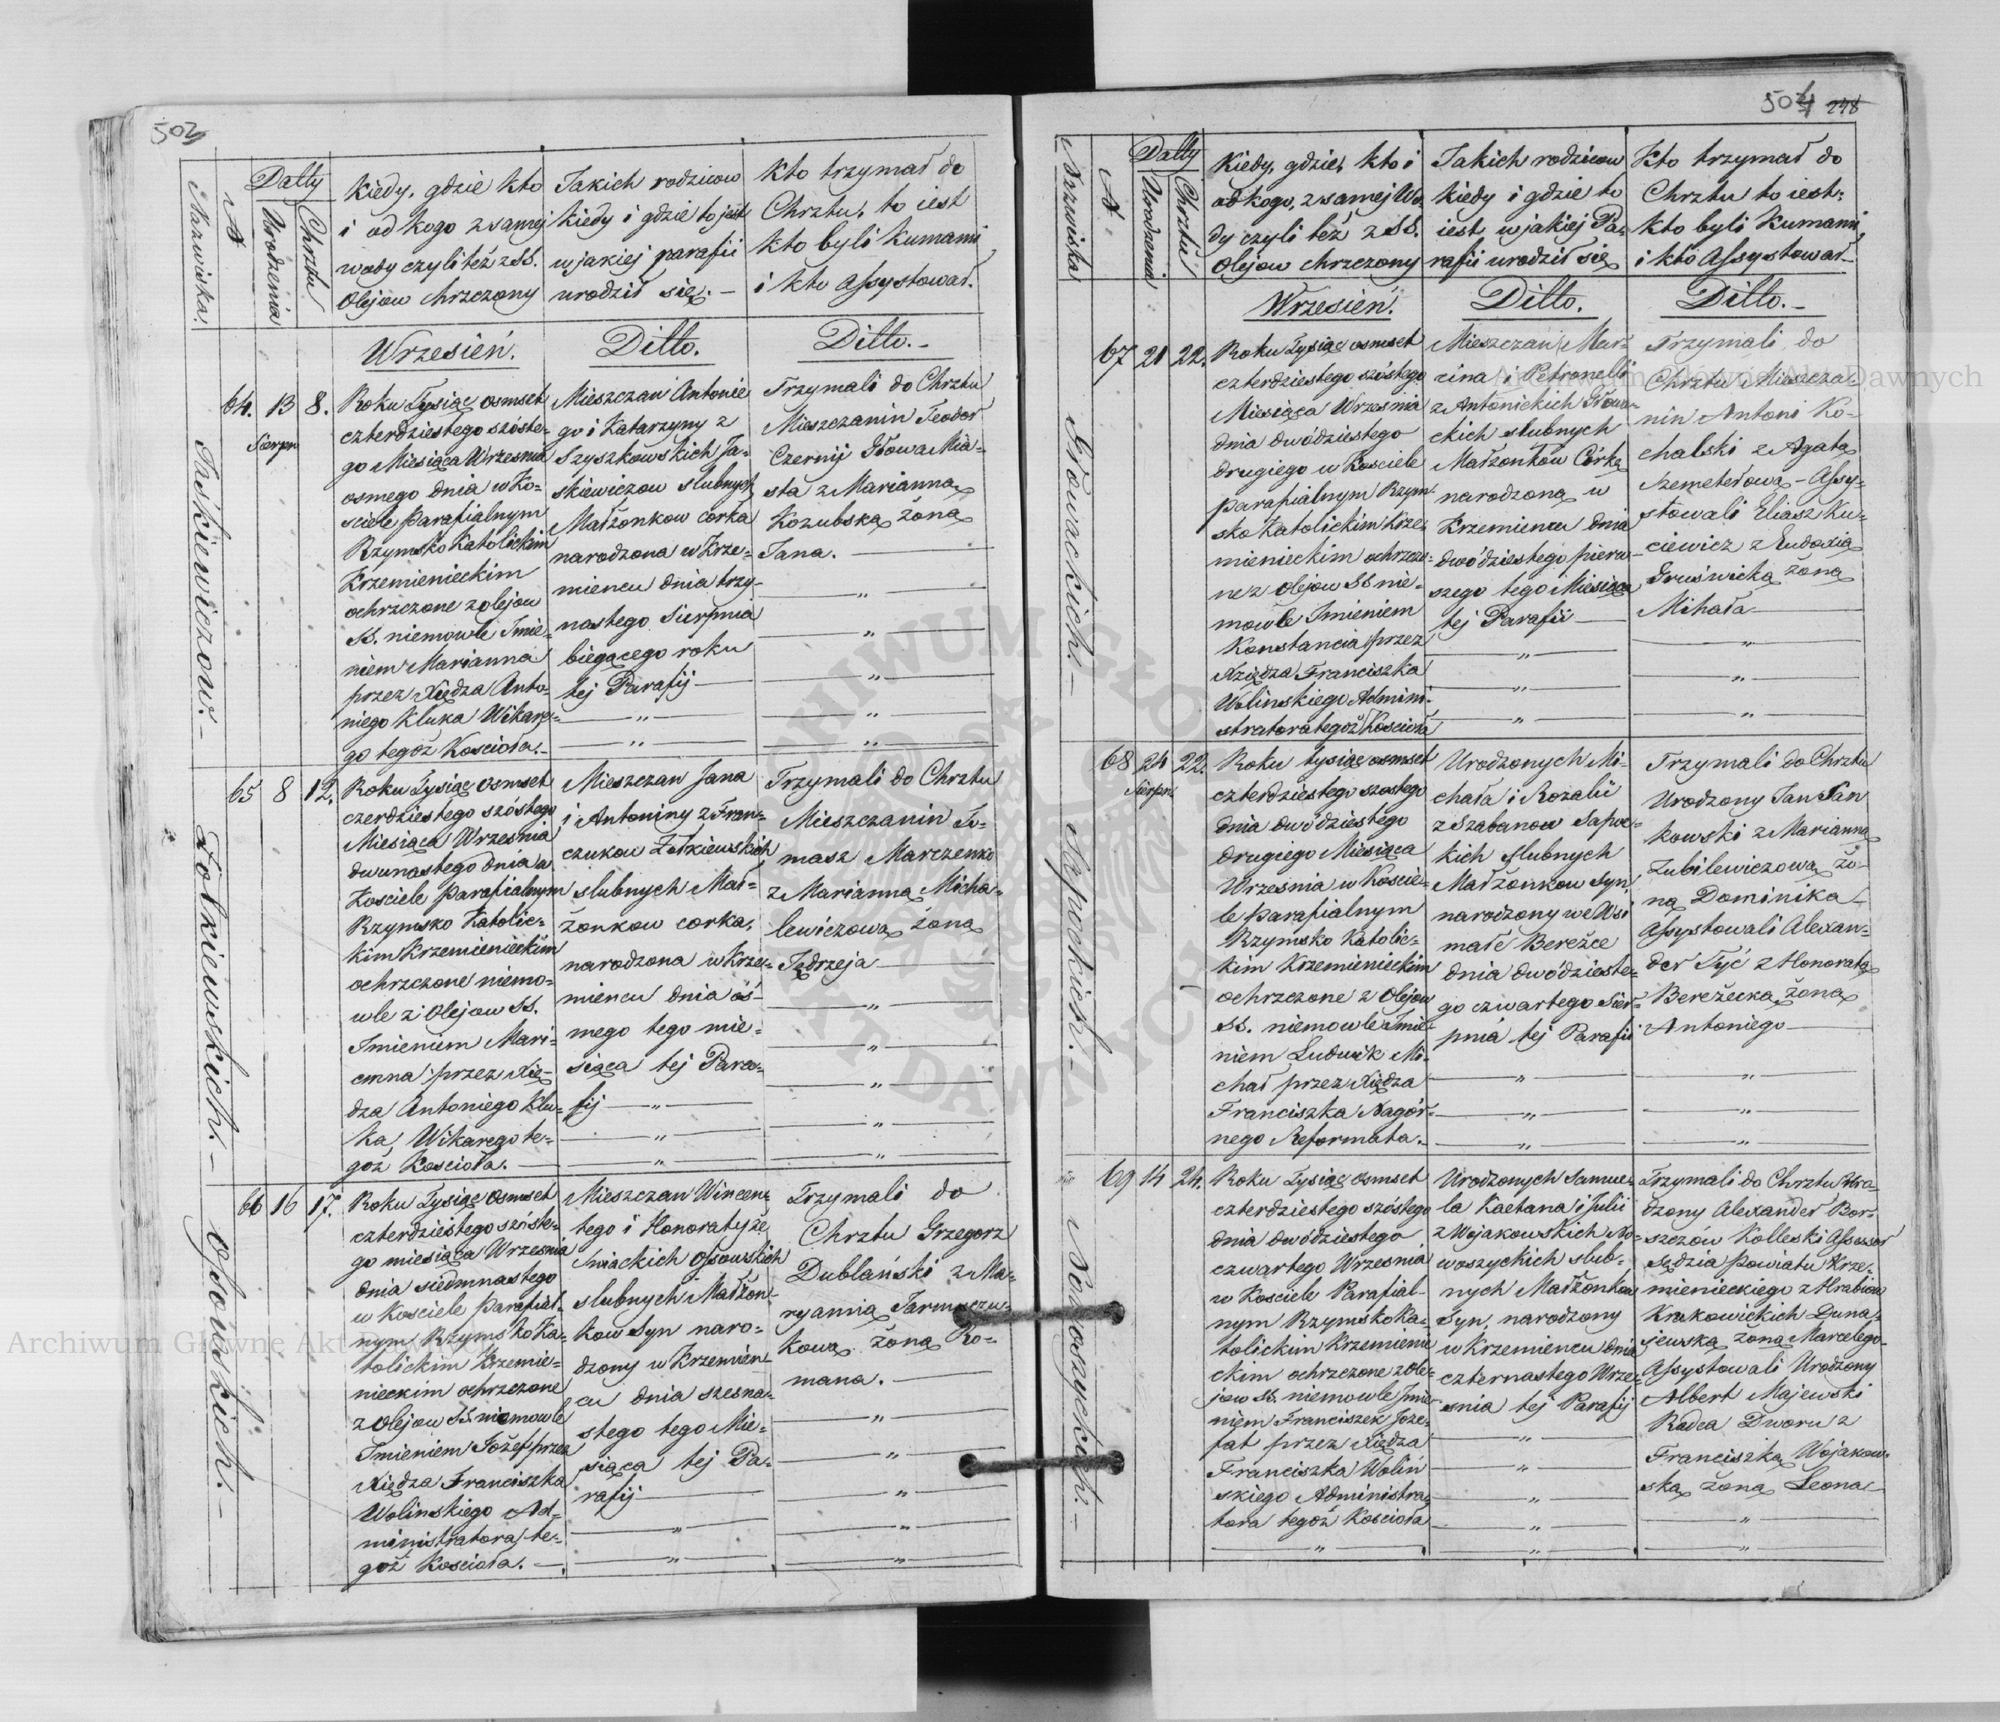 503
Nazwiska.
N
Datty
Urodzenia
Chrztu
Kiedy, gdzie kto
i od kogo z samej
wody czyli też z SS.
Olejow chrzczony
Jakich rodzicow
kiedy i gdzie to jest
w jakiej parafii
urodził się. —
Kto trzymał do
Chrztu, to iest
kto byli Kumami
i kto Assystował.
Wrzesień.
Ditto.
Ditto. —
Jaśkiewiczow. —
64. 13 8.
Sierpn
Roku Tysiąc osmset
czterdziestego szóste-
go Miesiąca Wrzesnia
osmego dnia w Ko-
sciele parafialnym
Rzymsko Katolickim
Krzemienieckim
ochrzczone z olejow
SS. niemowle Imie-
niem Marianna
przez Xiędza Anto-
niego Kluka Wikare-
go tegoż Kościoła. —
Mieszczan Antonie
go i Katarzyny z
Szyszkowskich Ja-
skiewiczow slubnych
Małżonkow corka
narodzona w Krze-
miencu dnia trzy-
nastego Sierpnia
biegącego roku
tej Parafij —
Trzymali do Chrztu
Mieszczanin Teodor
Czernij Głowa Mia-
sta z Marianną
Kozubską żoną
Jana. —
Żołkiewskich. —
65 8 12.
Roku Tysiąc Osmset
czerdziestego szóstego
Miesiąca Wrzesnia
dwunastego dnia w
Kosciele parafialnym
Rzymsko Katolic-
kim Krzemienieckim
ochrzczone niemo-
wle z Olejow SS.
Imieniem Mari-
anna przez Xię-
dza Antoniego Klu-
ka, Wikarego te-
goż Kościoła. —
Mieszczan Jana
i Antoniny z Fran-
czukow Żołkiewskich
slubnych Mał-
żonkow corka,
narodzona w Krze-
miencu dnia ós-
mego tego mie-
siąca tej Para-
fij —
Trzymali do Chrztu
Mieszczanin To-
masz Marczenko
z Marianną Micha-
lewiczową żoną
Jędrzeja —
Ossowskich. —
66 16 17.
Roku Tysiąc Osmset
czterdziestego szóste-
go miesiąca Wrzesnia
dnia siedmnastego
w Kosciele parafial-
nym Rzymsko Ka-
tolickim Krzemie-
nieckim ochrzczone
z Olejow SS niemowle
Imieniem Jożef przez
Xiędza Franciszka
Wolinskiego Ad-
ministratora te-
goż Kościoła. —
Mieszczan Wincen-
tego i Honoraty z
Ossowskich
slubnych Małżon-
kow Syn naro-
dzony w Krzemien-
cu dnia szesna-
stego tego Mie-
siąca tej Pa-
rafij —
Trzymali do
Chrztu Grzegorz
Dublański z Ma-
ryanną Jarmoszu-
kową żoną Ro-
mana. —
504 248
Nazwiska
N.
Datty
Urodzenia
Chrztu
Kiedy, gdzie, kto i
od kogo, z samej Wo
dy czyli też z SS.
Olejow chrzczony
Jakich rodzicow
kiedy i gdzie to
iest w jakiej Pa-
rafii urodził się
Kto trzymał do
Chrztu to iest:
kto byli Kumami,
i kto Assystował
Wrzesień.
Ditto.
Ditto. —
Głowackich.
67 21 22.
Roku Tysiąc osmset
czterdziestego szóstego
Miesiąca Wrzesnia
dnia dwódziestego
drugiego w Kosciele
parafialnym Rzym-
sko Katolickim Krze-
mienieckim ochrzczo-
ne z Olejow SS nie-
mowle Imieniem
Konstancia przez
Xziędza Franciszka
Wolinskiego Admini-
stratora tegoż Kościoła
Mieszczan Mar-
cina i Petronelli
z Antonickich Głowa-
ckich slubnych
Małżonkow Córka
narodzona w
Krzemiencu dnia
dwódziestego pierw-
szego tego Miesiąca
tej Parafii —
Trzymali do
Chrztu Mieszcza-
nin Antoni Ko-
chalski z Agatą
Szemetową — Assy-
stowali Eliasz Ku-
ciewicz z Eudoxią
Gruświcką żoną
Mihała —
Sapockich. —
68 24 22.
Sierpn
Roku tysiąc osmset
czterdziestego szostego
dnia dwódziestego
drugiego Miesiąca
Wrzesnia w Koscie-
le parafialnym
Rzymsko Katolic-
kim Krzemienieckim
ochrzczone z Olejow
SS. niemowle Imie-
niem Ludwik Mi-
chał przez Xiędza
Franciszka Nagór-
nego Reformata. —
Urodzonych Mi-
chała i Rozalii
z Szabanow Sapoc-
kich slubnych
Małżonkow Syn,
narodzony we Wsi
małe Bereżce
dnia dwódzieste-
go czwartego Sier-
pnia tej Parafii
Trzymali do Chrztu
Urodzony Jan Pan
kowski z Marianną
Zubilewiczową żo-
ną Dominika —
Assystowali Alexan-
der Tyć z Honoratą
Bereżecką żoną
Antoniego —
Nowoszyckich. —
69 14 24.
Roku Tysiąc osmset
czterdziestego szóstego
dnia dwódziestego
czwartego Wrzesnia
w Kosciele Parafial-
nym Rzymsko Ka-
tolickim Krzemienie
ckim ochrzczone z Ole-
jow SS. niemowle Imie-
niem Franciszek Joze-
fat przez Xiędza
Franciszka Woliń
skiego Administra-
tora tegoż Kościoła
Urodzonych Samue-
la Kaetana i Julii
z Wojakowskich No-
woszyckich slub-
nych Małżonkow
Syn, narodzony
w Krzemiencu dnia
czternastego Wrze-
snia tej Parafij
Trzymali do Chrztu Uro-
dzony Alexander Bor-
szczów Kolleski Assesor
Sędzia Powiatu Krze-
mienieckiego z Hrabiow
Krakowickich Duna-
jewską żoną Marcelego —
Assystowali Urodzony
Albert Majewski
Radca Dworu z
Franciszką Wojakow-
ską żoną Leona —
Archiwum Główne Akt Dawnych
Archiwum Główne Akt Dawnych
ARCHIWUM GŁÓWNE AKT DAWNYCH